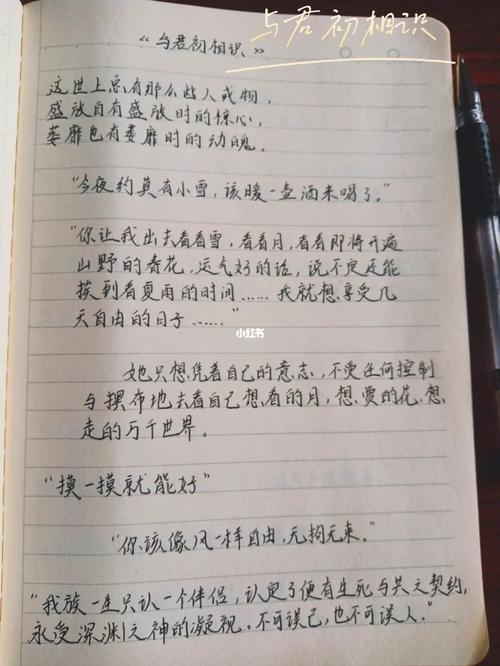 与君初相识
“与君初相识》
这世上总有那么些人或物，
盛放自有盛放时的惊心，
萎靡也有萎靡时的动魄。
“今夜约莫有小雪，该暖一壶酒来喝了。”
“你让我出去看看雪，看看月，看看即将开遍
山野的春花，运气好的话，说不定还能
挨到看夏雨的时间……我就想享受几
天自由的日子……”
小红书
她只想凭着自己的意志，不受任何控制
与摆布地去看自己想看的月，想爱的花，想
走的万千世界。
“摸一摸就能好”
“你该像风一样自由，无拘无束。”
“我族一生只认一个伴侣，认定了便有生死与共之契约，
永受深渊之神的凝视。不可误己，也不可误人。”